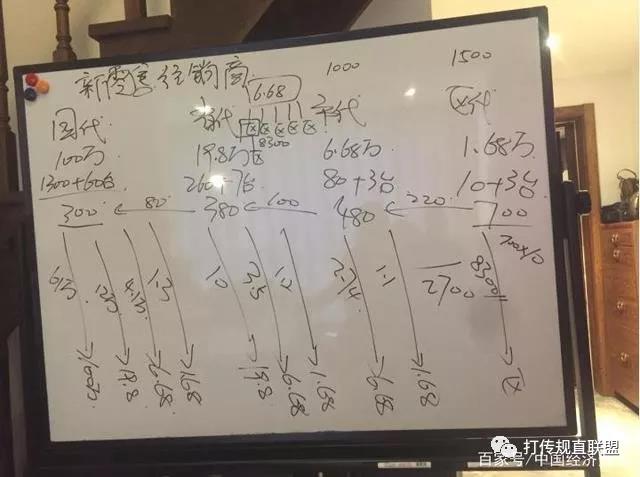 新零售经销商
1000 1500
6.68
国代 省代 区区区区区 市代 区代
8300
100万 19.8万 区 6.68万 1.68万
1300+60台 260+7台 80+3台 10+3台
300 80 380 100 480 220 700
700×10
8300
2700
6万 4.15 1.3 10 3.5 1.2 2.74 1.1
100万 19.8 6.68 1.68 19.8 6.68 1.68 6.68 1.68 区
打传规直联盟
百家号/中国经济